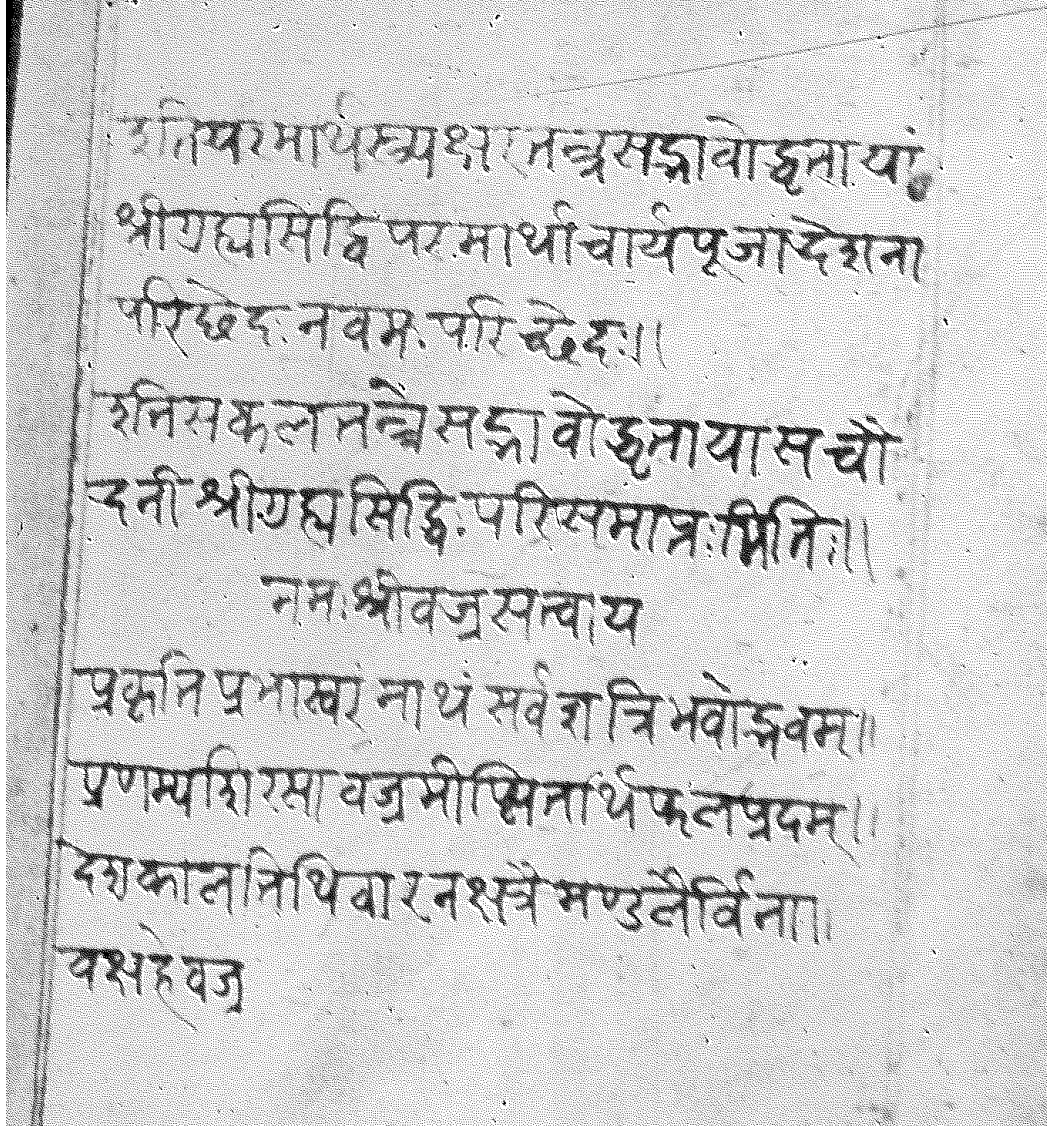 इतिपरमार्थस्त्र्यक्षरतन्त्रसद्भावोद्धृतायां
श्रीगुह्यसिद्धिपरमार्थाचार्यपूजादेशना
परिछेदः नवमः परिच्छेदः॥
इतिसकलतन्त्रैसद्भावोद्धृतायासचौ
दनी श्रीगुह्यसिद्धिः परिसमाप्तःमितिः॥
नमःश्रीवज्रसत्वाय
प्रकृतिप्रभास्वरं नाथं सर्वज्ञ त्रिभवोद्भवम्॥
प्रणम्यशिरसा वज्रमीप्सितार्थफलप्रदम्॥
देशकालतिथिवारनक्षत्रैमण्डलैर्विना॥
वक्षहेवज्र